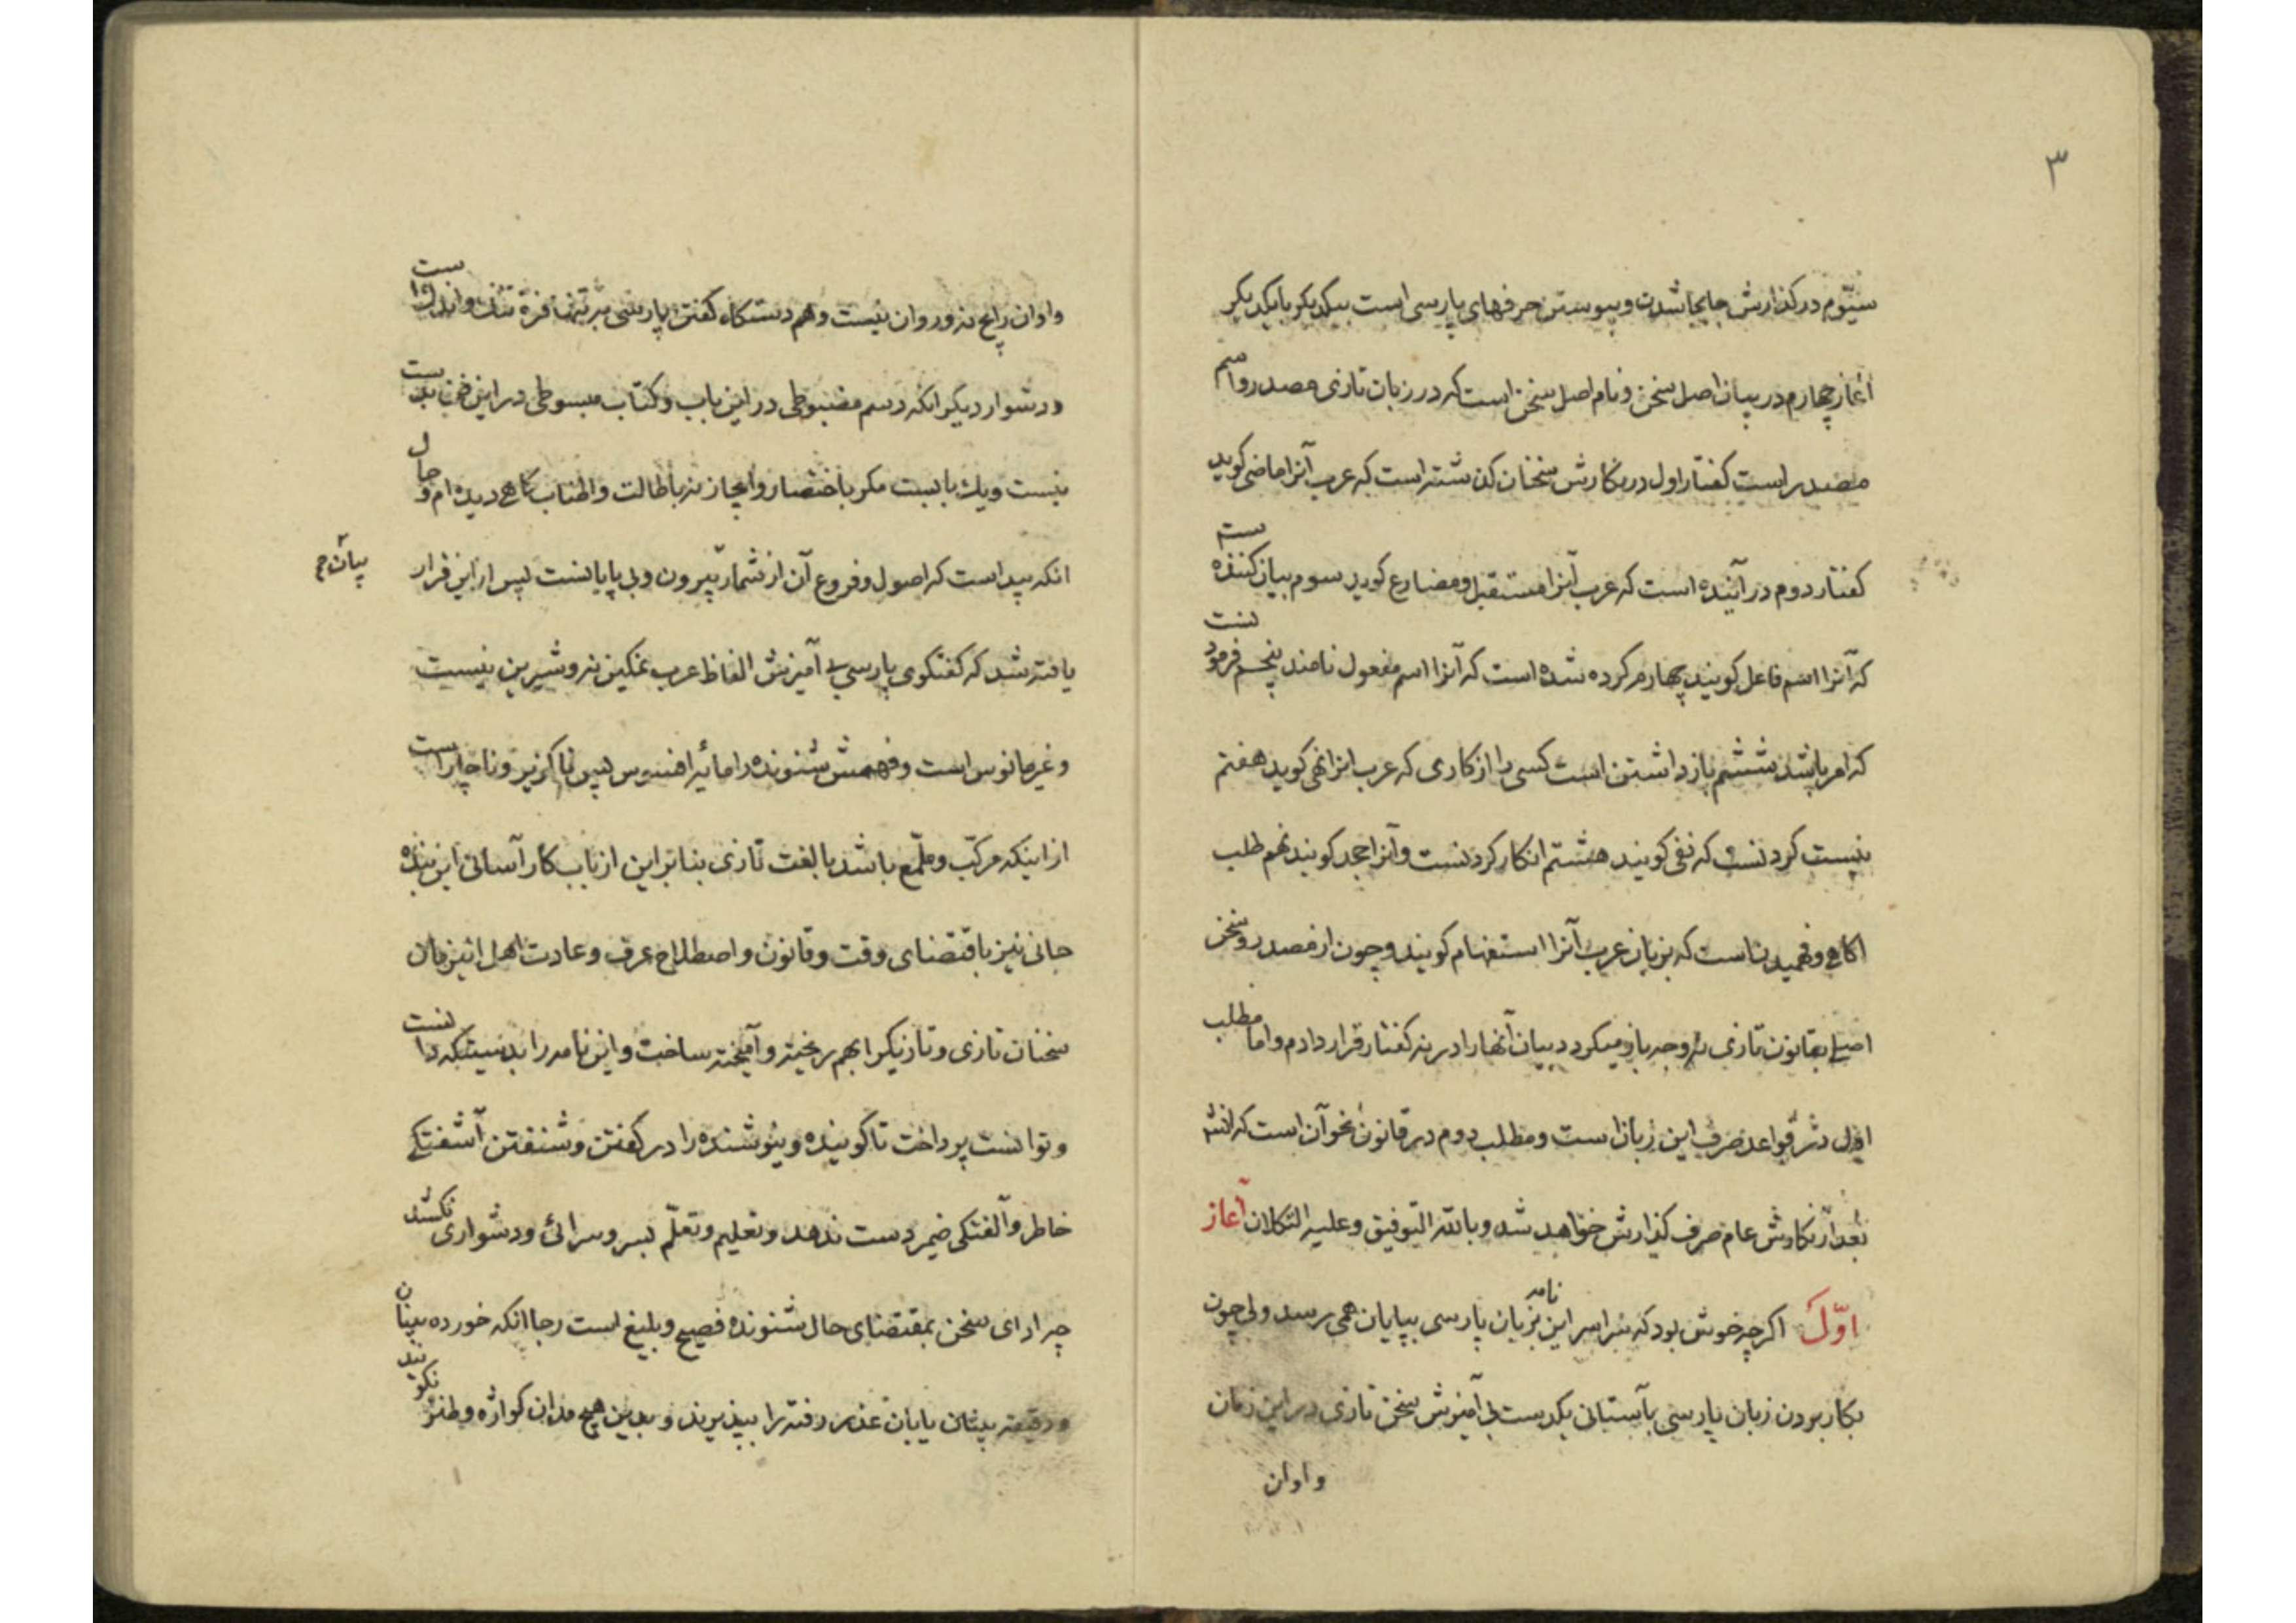 ۳
سیّوم در کذارش جابجا شدن و پیوستن حرفهای پارسی است بیکدیکر بایکدیکر
آغاز چهارم در بیان اصل سخن و نام اصل سخن است که در زبان تازی مصدر و اسم
مصدر است کفتار اول در نکارش سخنان کذشته است که عرب آنرا ماضی کوید
کفتار دوم در آینده است که عرب آنرا مستقبل و مضارع کوید سوم بیان کننده ست
که آنرا اسم فاعل کویند چهارم کرده شده است که آنرا اسم مفعول نامند پنجم فرمودنست
که امر باشد ششم باز داشتن است کسی را از کاری که عرب انرا نهی کوید هفتم
نیست کردنست که نفی کویند هشتم انکار کردنست و آنرا جحد کویند نهم طلب
اکاهی و فهمیدن است که بزبان عرب آنرا استفهام کویند و چون از مصدر و سخن
اصلی بقانون تازی نه وجه باز میکردد بیان آنها را در نه کفتار قرار دادم و اما مطلب
اول در قواعد صرف این زبان است و مطلب دوم در قانون نحو آن است که انشا
بعد از نکارش عام صرف کذارش خواهد شد و بالله التوفیق و علیه التکلان آغاز
اوّل اکرچه خوش بود که سراسر این نامه بزبان پارسی بپایان همی رسد ولی چون
بکار بردن زبان پارسی باستانی یکدست بی آمیزش سخن تازی در این زمان
و اوان
و اوان رایج نه و روان نیست و هم دستکاه کفتن پارسی مرتبها فره تنک و اندک است
و دشوار دیکر انکه رسم مضبوطی در این باب و کتاب مبسوطی در این فن بدست
نیست و یک با بست مکر باختصار و ایجاز نه باطالت و اطناب کاهی دیده ام و حال
انکه پیداست که اصول و فروع آن از شمار بیرون و بی پایانست پس از این قرار
یافته شد که کفتکوی پارسی بی آمیزش الفاظ عرب نمکین نه و شیرین نیست
و غیر مانوس است و فهمش شنونده را مایه افسوس پس ناکزیر و ناچار است
از اینکه مرکّب و ملمّع باشد با لغت تازی بنابر این از باب کار آسانی این بنده
جانی نیز باقتضای وقت و قانون و اصطلاح عرف و عادت اهل اینزمان
سخنان تازی و تازیکرا بهم ریخته و آمیخته ساخت و این نامه را بدینسیکه دانست
و توانست پرداخت تا کوینده و نیوشنده را در کفتن و شنفتن آشفتکی
خاطر و آلفتکی ضمیر دست ندهد و تعلیم و تعلّم بسر و سرائی و دشواری نکشد
چه ادای سخن بمقتضای حال شنونده فصیح و بلیغ است رجا انکه خورده بینان
و دقیقه بینان یابان عذر رفته را بپذیرند و بدین هیچ مدان کوازه و طنز نکویند